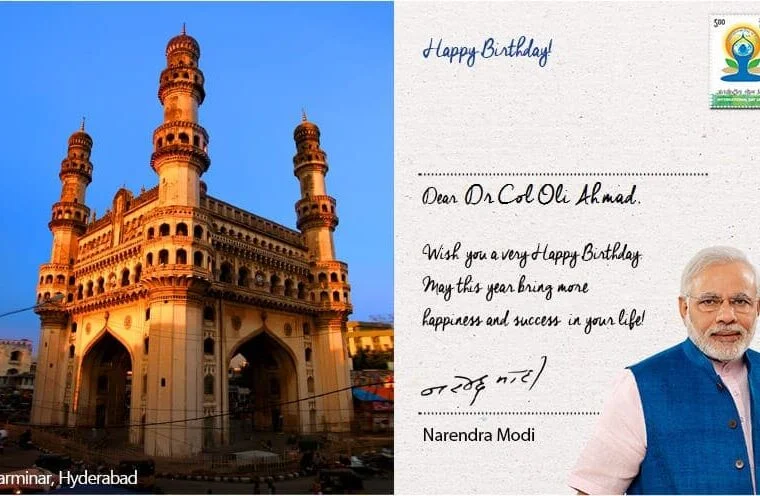 Happy Birthday!
500
INTERNATIONAL DAY
Dear Dr Col Oli Ahmad,
Wish you a very Happy Birthday.
May this year bring more
happiness and success in your life!
Narendra Modi
arminar, Hyderabad